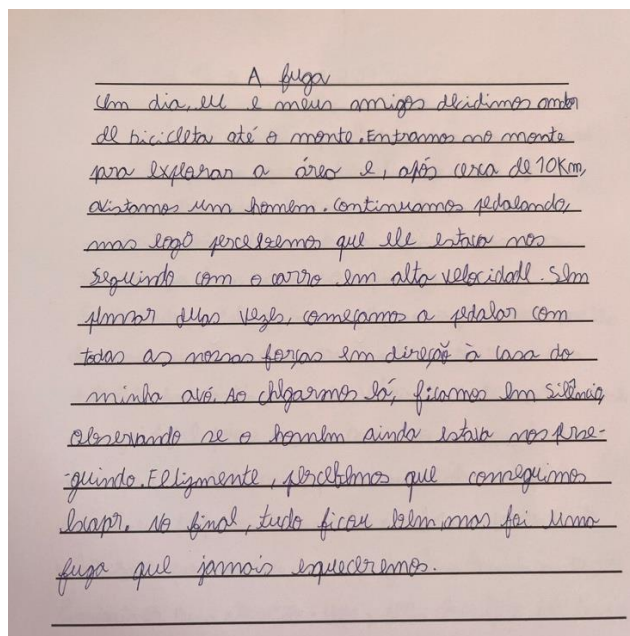 A fuga
Um dia, eu e meus amigos decidimos andar
de bicicleta até o monte. Entramos no monte
pra explorar a área e, após cerca de 10Km,
avistamos um homem. Continuamos pedalando,
mas logo percebemos que ele estava nos
seguindo com o carro em alta velocidade. Sem
pensar duas vezes, começamos a pedalar com
todas as nossas forças em direção à casa do
minha avó. Ao chegarmos lá, ficamos em silêncio,
observando se o homem ainda estava nos perse-
-guindo. Felizmente, percebemos que conseguimos
escapr. No final, tudo ficou bem, mas foi uma
fuga que jamais esqueceremos.